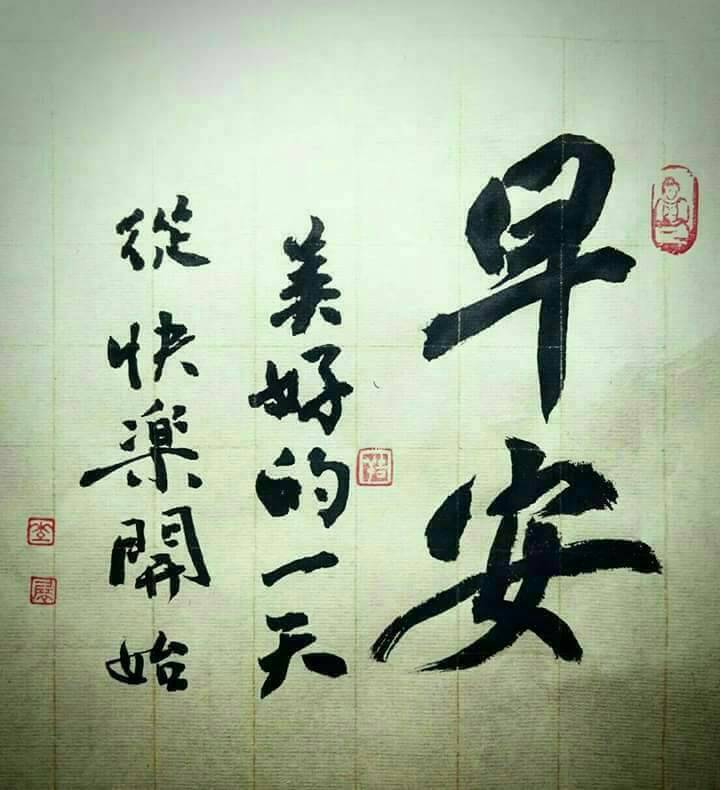 早安
美好的一天
從快樂開始